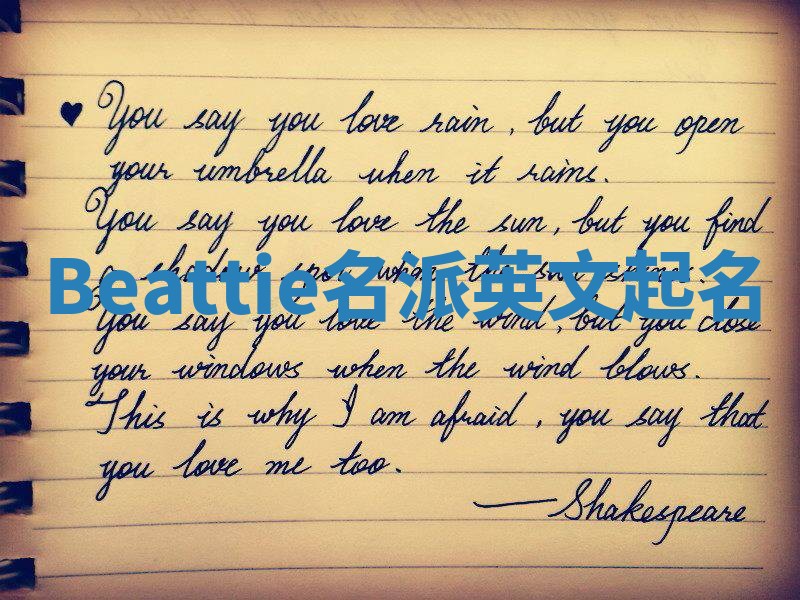 ♥ You say you love rain, but you open
your umbrella when it rains.
You say you love the sun, but you find
a shadow spot when the sun shines.
Beattie名派英文起名
You say you love the wind, but you close
your windows when the wind blows.
This is why I am afraid, you say that
you love me too.
—Shakespeare